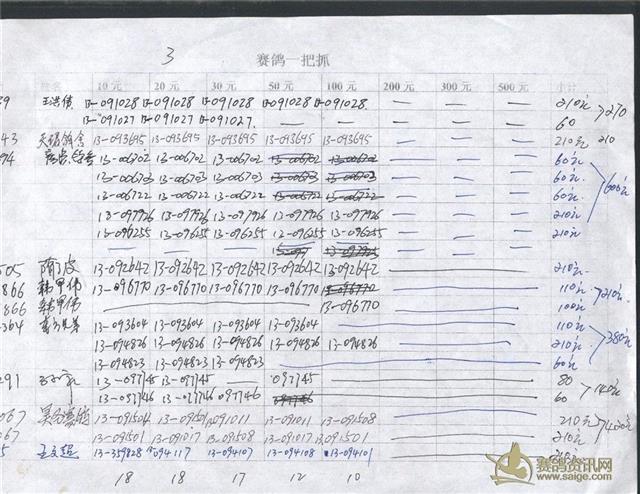 3 赛鸽一把抓
姓名 10元 20元 30元 50元 100元 200元 300元 500元 小计
39 13-091028 13-091028 13-091028 13-091028 13-091028 — — — 210元 270
13-091027 13-091027 13-091027 — — — — — 60
43 13-093695 13-093695 13-093695 13-093695 13-093695 — — — 210元 210
094 13-006702 13-006702 13-006702 13-006702 13-006702 — — — 60元 600元
13-006703 13-006703 13-006703 — — — 60元
13-006722 13-006722 13-006722 13-006722 — — — 60元
13-097926 13-097926 13-097926 13-097926 13-097926 — — — 210元
13-096255 13-096255 13-096255 13-096255 13-096255 — — — 210元
505 13-092642 13-092642 13-092642 13-092642 13-092642 210元
866 韩甲伟 13-096770 13-096770 13-096770 13-096770 110元 210元
866 韩甲伟 13-096770 100元
364 13-093604 13-093604 13-093604 13-093604 110元 380元
13-094826 13-094826 13-094826 13-094826 13-094826 210元
13-094823 13-094823 13-094823 60元
291 13-097745 13-097745 — 097745 80 140元
13-097746 13-097746 097746 60
067 13-091504 13-091501 13-091011 13-091011 13-091508 210元 420元
067 13-091501 13-091017 13-091508 13-091017 13-091501 210元
5 王文超 13-359828 13-094117 13-094107 13-094108 13-094101 210元
18 18 17 12 10
赛鸽资讯网
www.saige.com